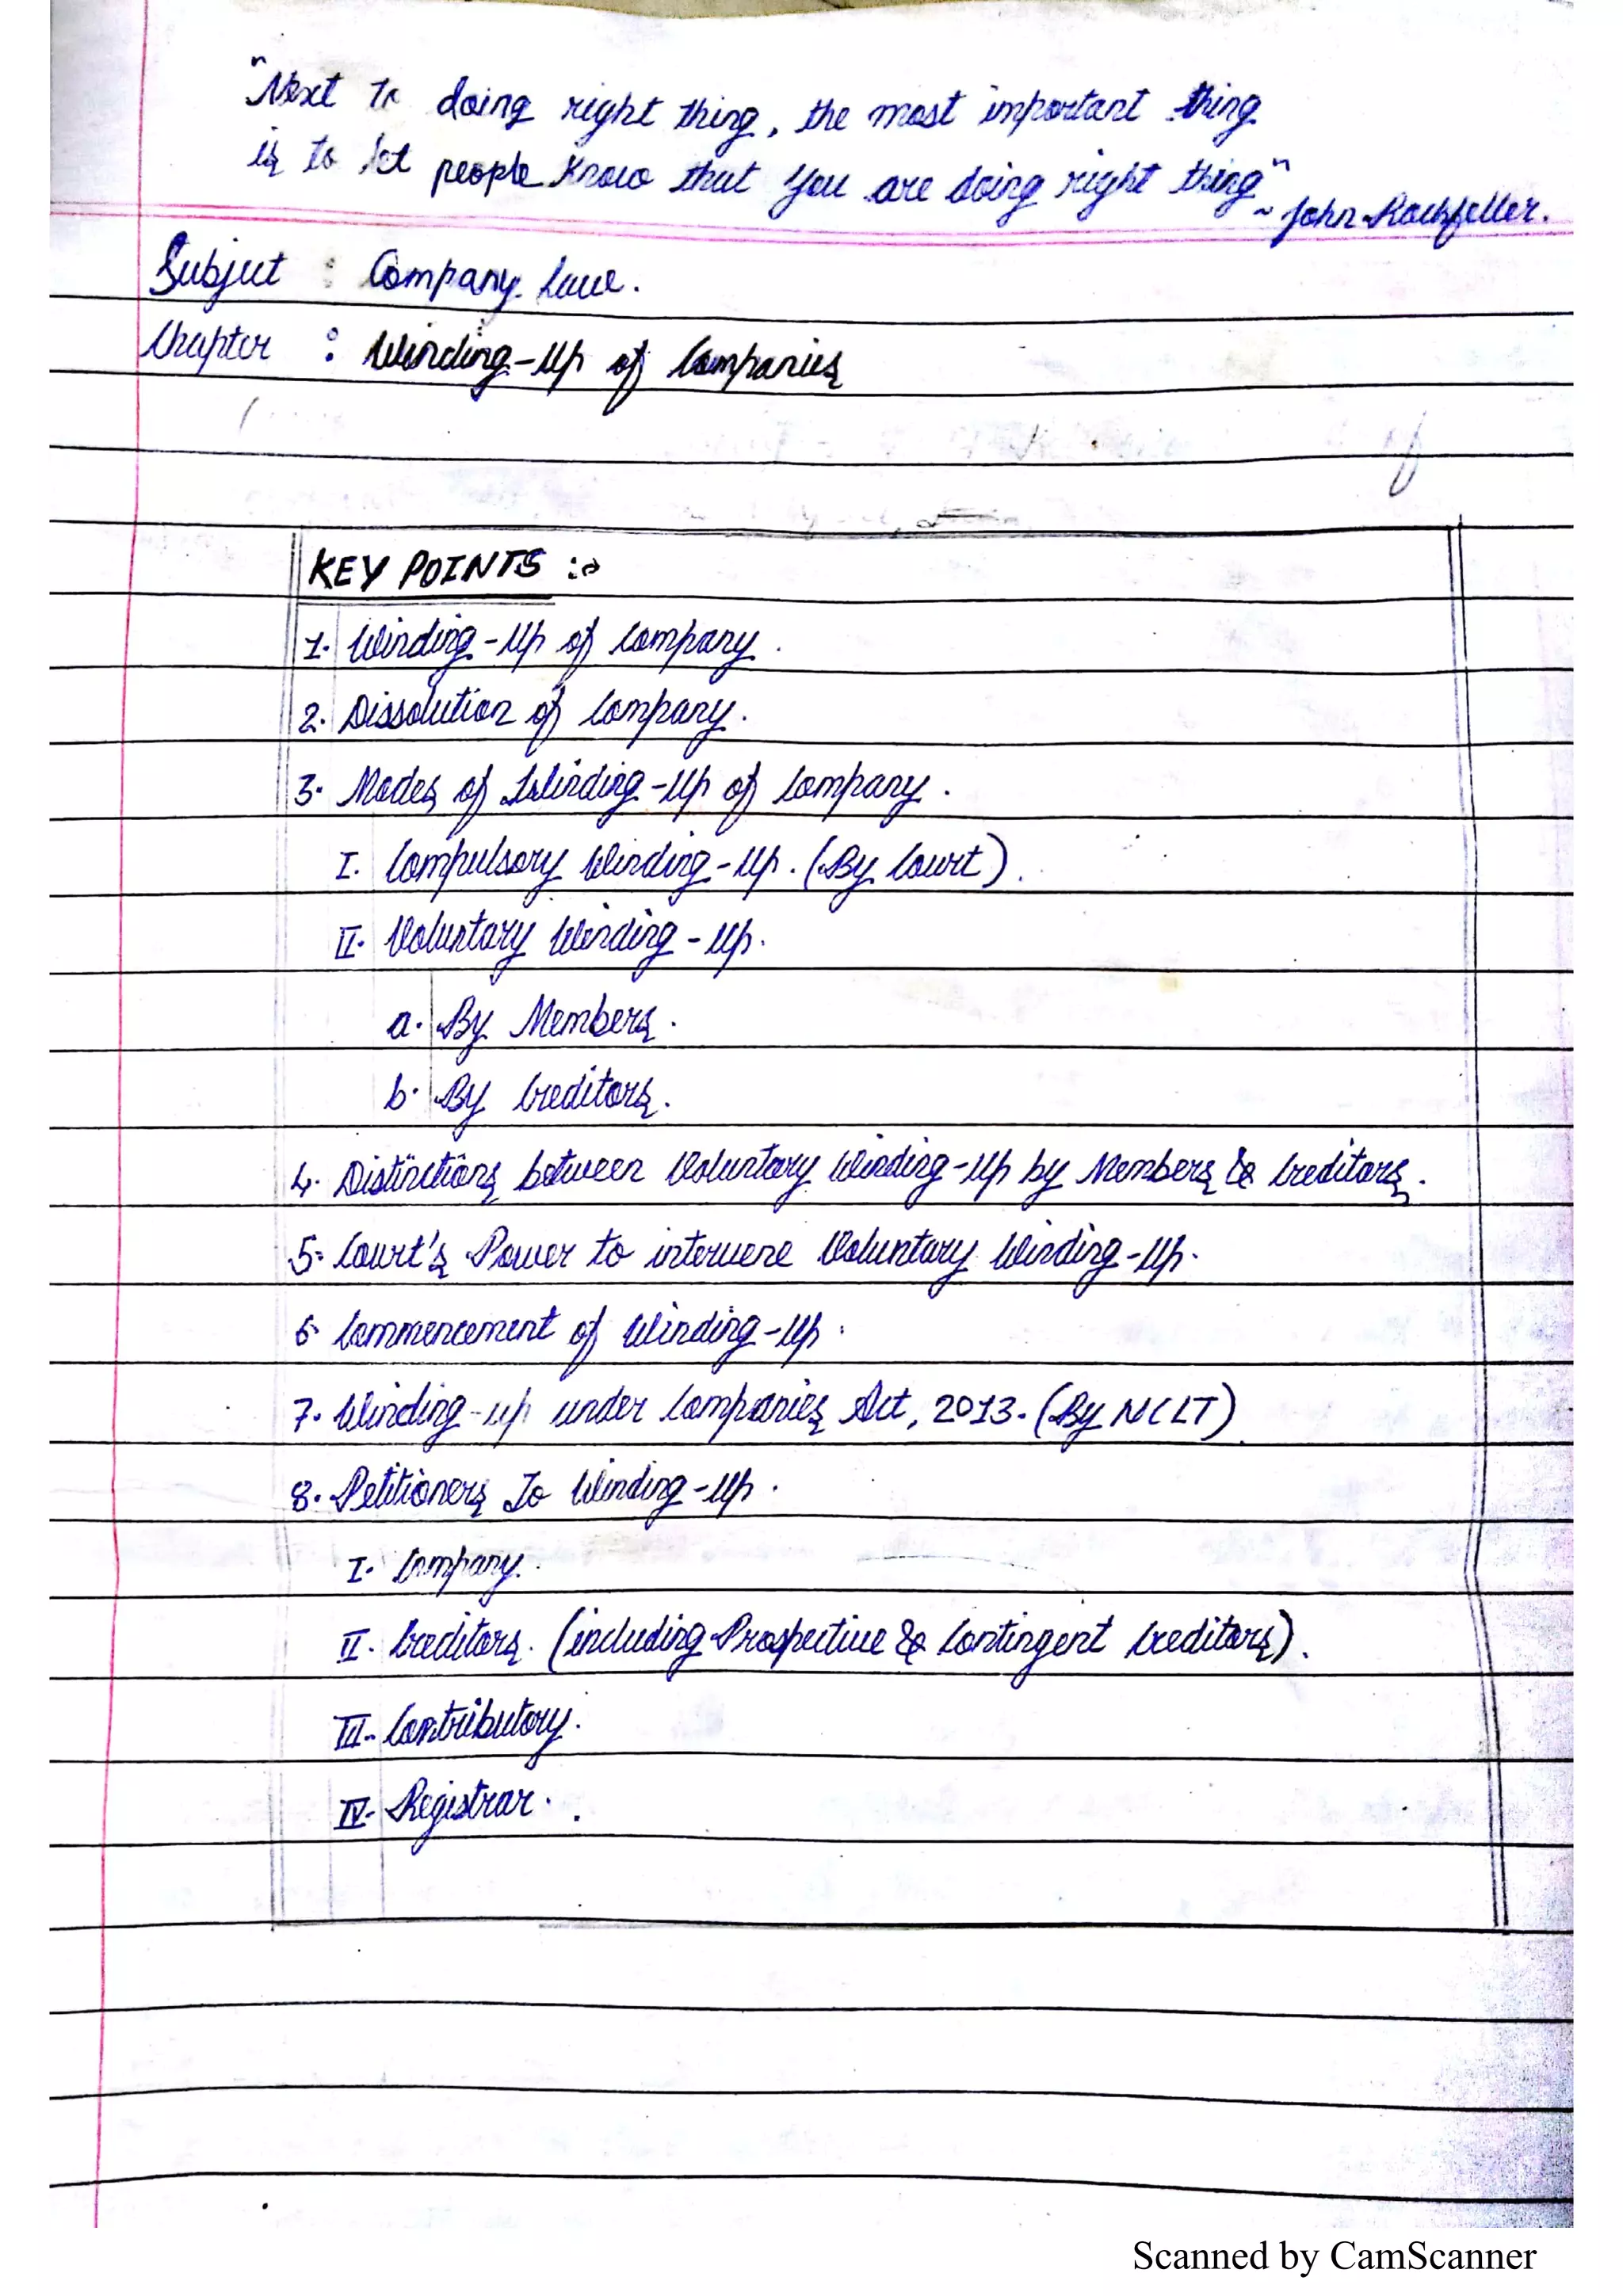 "Next To doing right thing, the most important thing
is to let people Know that You are doing right thing"
~ John Rockfeller.
Subject : Company Law.
Chapter : Winding-Up of Companies
KEY POINTS :->
1. Winding-Up of Company.
2. Dissolution of Company.
3. Modes of Winding-Up of Company.
I. Compulsory Winding-Up. (By Court).
II. Voluntary Winding-Up.
a. By Members.
b. By Creditors.
4. Distinctions between Voluntary Winding-Up by Members & Creditors.
5. Court's Power to intervene Voluntary Winding-Up.
6. Commencement of Winding-Up.
7. Winding-up under Companies Act, 2013. (By NCLT)
8. Petitioners To Winding-Up.
I. Company.
II. Creditors. (including Prospective & Contingent Creditors).
III. Contributory.
IV. Registrar.
Scanned by CamScanner